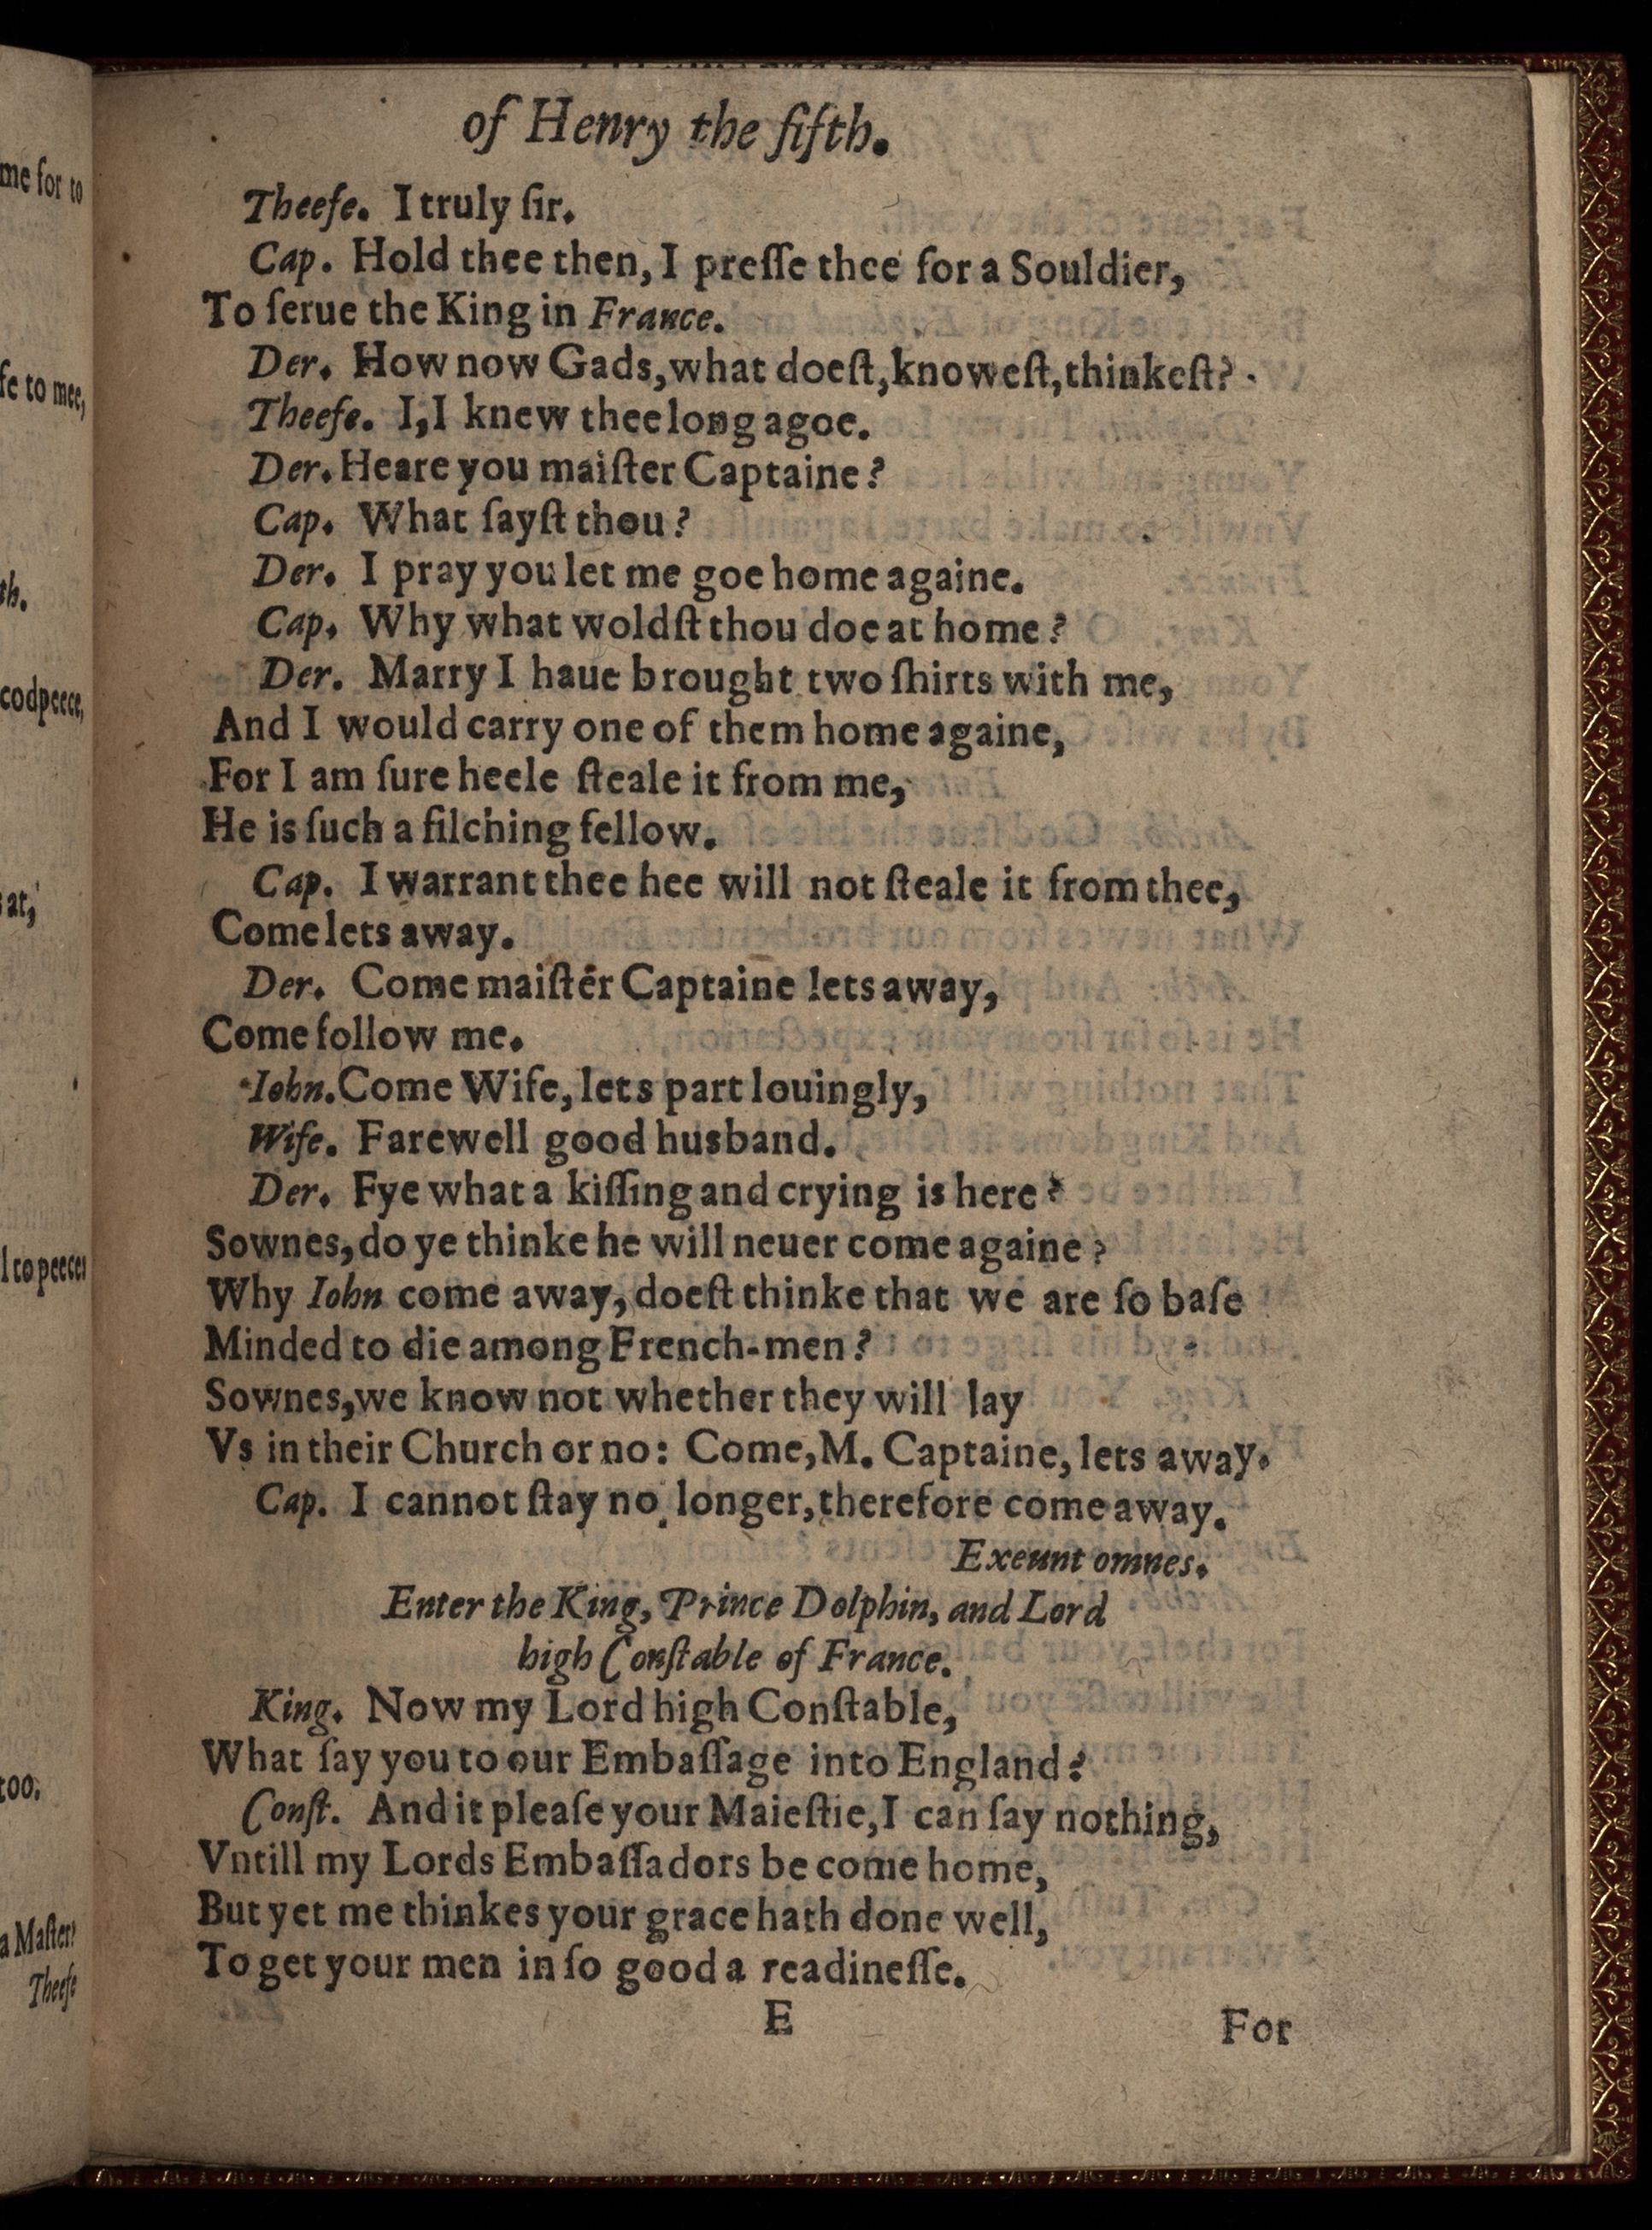 of Henry the fifth.
Theefe. I truly ſir.
Cap. Hold thee then, I preſſe thee for a Souldier,
To ſerue the King in France.
Der. How now Gads, what doeſt, knoweſt, thinkeſt?
Theefe. I, I knew thee long agoe.
Der. Heare you maiſter Captaine?
Cap. What ſayſt thou?
Der. I pray you let me goe home againe.
Cap. Why what woldſt thou doe at home?
Der. Marry I haue brought two ſhirts with me,
And I would carry one of them home againe,
For I am ſure heele ſteale it from me,
He is ſuch a filching fellow.
Cap. I warrant thee hee will not ſteale it from thee,
Come lets away.
Der. Come maiſter Captaine lets away,
Come follow me.
Iohn. Come Wife, lets part louingly,
Wife. Farewell good husband.
Der. Fye what a kiſſing and crying is here?
Sownes, do ye thinke he will neuer come againe?
Why Iohn come away, doeſt thinke that we are ſo baſe
Minded to die among French-men?
Sownes, we know not whether they will lay
Vs in their Church or no: Come, M. Captaine, lets away.
Cap. I cannot ſtay no longer, therefore come away.
Exeunt omnes.
Enter the King, Prince Dolphin, and Lord
high Conſtable of France.
King. Now my Lord high Conſtable,
What ſay you to our Embaſſage into England?
Conſt. And it pleaſe your Maieſtie, I can ſay nothing,
Vntill my Lords Embaſſadors be come home,
But yet me thinkes your grace hath done well,
To get your men in ſo good a readineſſe.
E For
me for to
ſe to mee,
th.
codpeece,
at,
l to peeces
too,
a Maſter?
Theefe